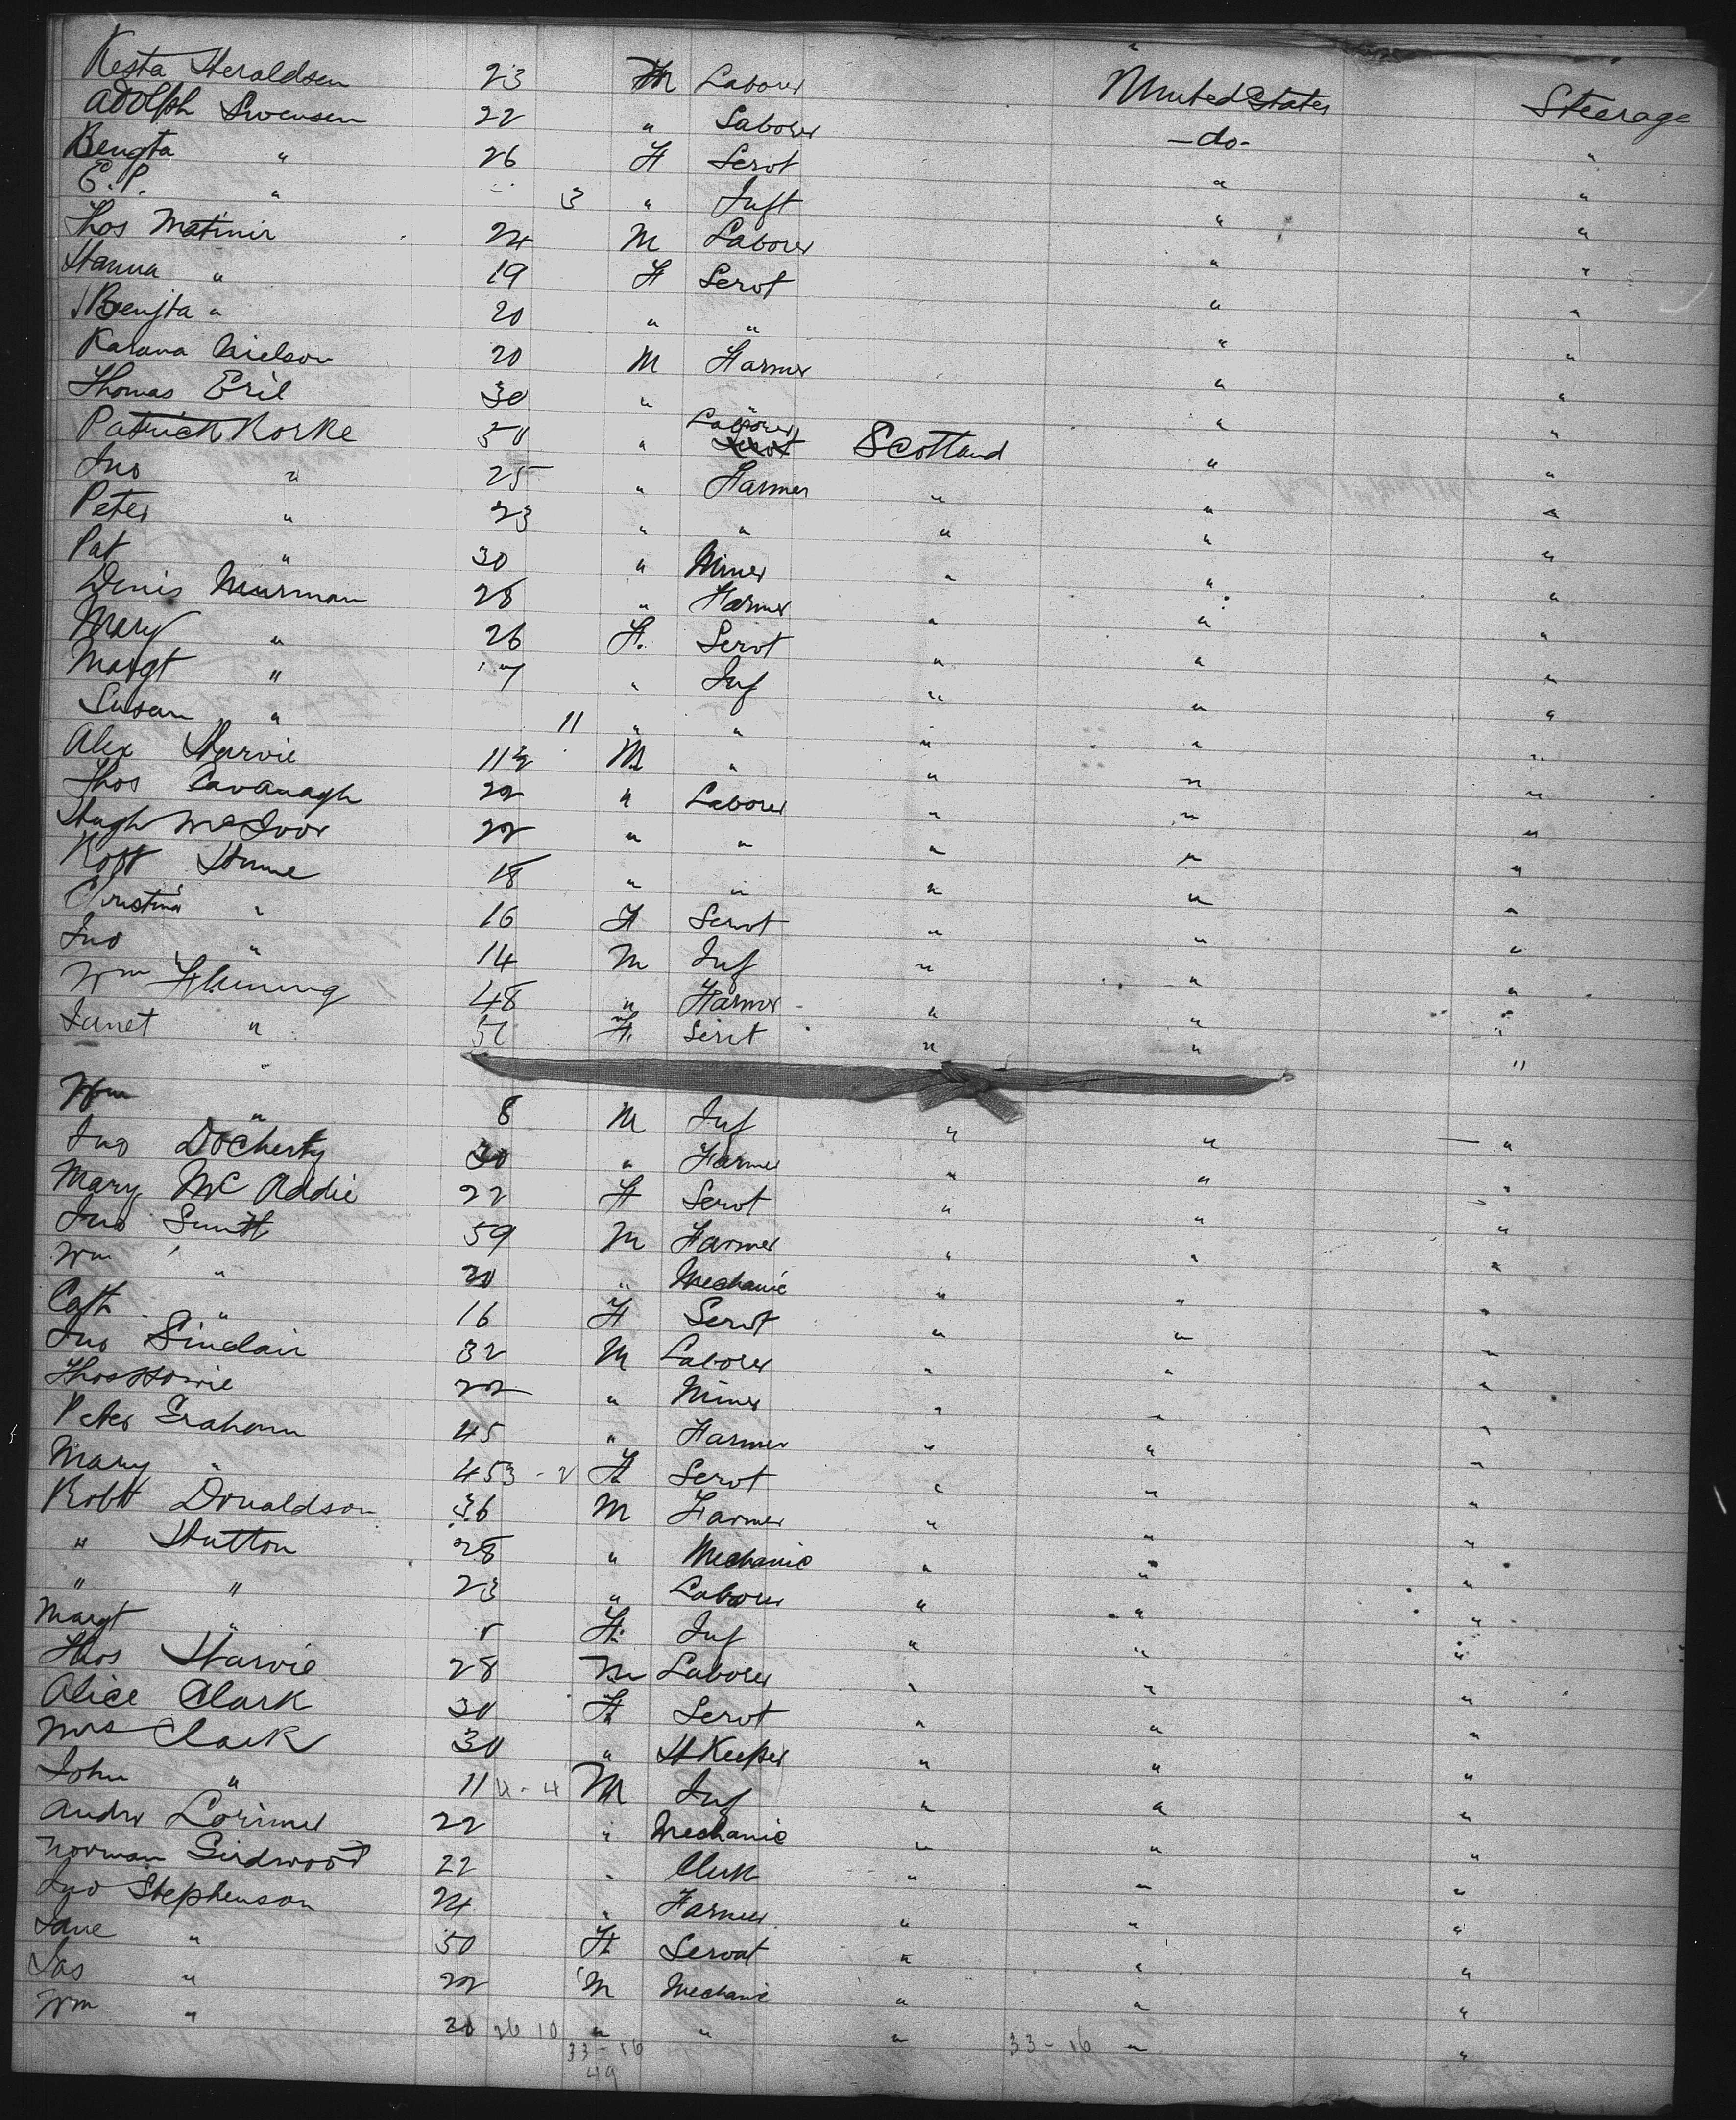 Kesta Heraldsen 23 M Laborer United States Steerage
Adolph Swensen 22 " Laborer -do- "
Bengta " 26 F Servt " "
E. P. " 3 " Inft " "
Thos 24 M Laborer " "
Hanna " 19 F Servt " "
Bengta " 20 " " " "
Karana Nielson 20 M Farmer " "
Thomas Eril 30 " " " "
Patrick Rorke 50 " Laborer Scotland " "
Jno " 25 " Farmer " " "
Peter " 23 " " " " "
Pat " 30 " Miner " " "
Denis Murman 28 " Farmer " " "
Mary " 26 F. Servt " " "
Margt " Inf " " "
Susan " 11 " " " " "
Alex Harvie 11 M " " " "
Thos Cavanagh 22 " Laborer " " "
Hugh McIvor 22 " " " " "
Robt Hume 18 " " " " "
Cristina " 16 F Servt " " "
Jno " 14 M Inf " " "
Wm Fleming 48 " Farmer " " "
Janet " 50 F. Servt " " "
Wm " 8 M Inf " " "
Jno Docherty 30 " Farmer " " "
Mary McAddie 22 F Servt " " "
Jno Smith 59 M Farmer " " "
Wm " 20 " Mechanic " " "
Cath " 16 F Servt " " "
Jno Sinclair 32 M Laborer " " "
Thos Howie 22 " Miner " " "
Peter Graham 45 " Farmer " " "
Mary " 45 3-2 F Servt " " "
Robt Donaldson 36 M Farmer " " "
" Hutton 28 " Mechanic " " "
" " 23 " Laborer " " "
Margt " F. Inf " " "
Thos Harvie 28 M Laborer " " "
Alice Clark 30 F Servt " " "
Mrs Clark 30 " H Keeper " " "
John " 11 4-4 M Inf " " "
Andw Lorimer 22 " Mechanic " " "
Norman Girdwood 22 " Clerk " " "
Jno Stephenson 24 " Farmer " " "
Jane " 50 F Servat " " "
Jas " 22 M Mechanic " " "
Wm " 20 26 10 " " " 33-16 " "
33-16
49